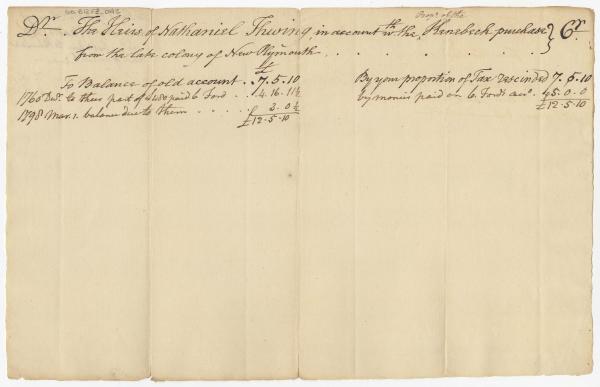 Prop.s of the
Dr. The Heirs of Nathaniel Thwing, in account wth the, Kenebeck purchase } Cr
from the late colony of New Plymouth
£
To Balance of old account . 7. 5. 10
1760 Decr. to their part of £480 paid G Ford . . 4. 16. 11½
1798 Mar. 1. balance due to them . . . . . . £ 3. 0½
£12. 5. 10
By your proportion of Tax rescinded 7. 5. 10
by monies paid on G. Ford's acco. . £5. 0. 0
£12. 5. 10